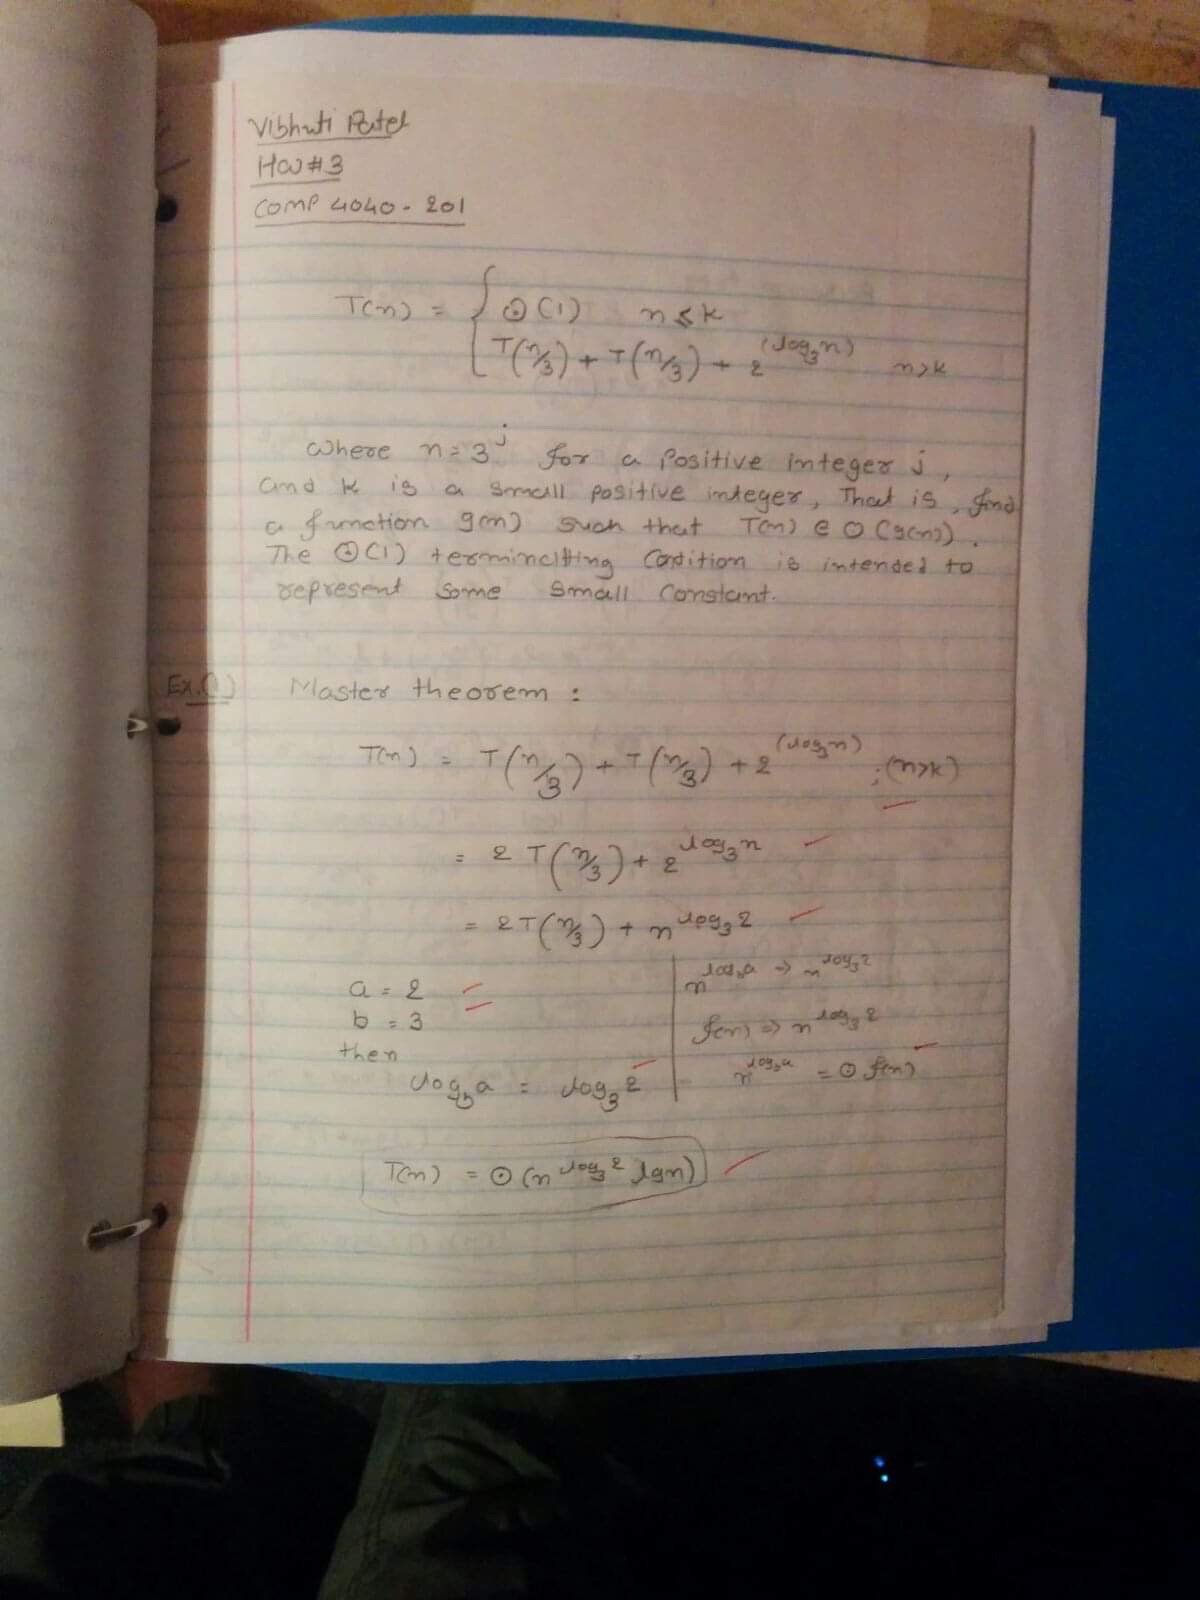 Vibhuti Patel
HW#3
COMP 4040 - 201
T(n) = { Θ(1) n ≤ k
T(n/3) + T(n/3) + 2^(log₃n) n>k
Where n = 3^j for a Positive integer j,
and k is a small positive integer, That is, find
a function g(n) such that T(n) ∈ Θ(g(n)).
The Θ(1) terminating Condition is intended to
represent some small constant.
Ex.(1) Master theorem :
T(n) = T(n/3) + T(n/3) + 2^(log₃n) ; (n>k)
= 2T(n/3) + 2^log₃n
= 2T(n/3) + n^log₃2
a = 2
b = 3
then
log_b a = log₃2
n^log_b a => n^log₃2
f(n) => n^log₃2
n^log_b a = Θ f(n)
T(n) = Θ(n^log₃2 lgn)